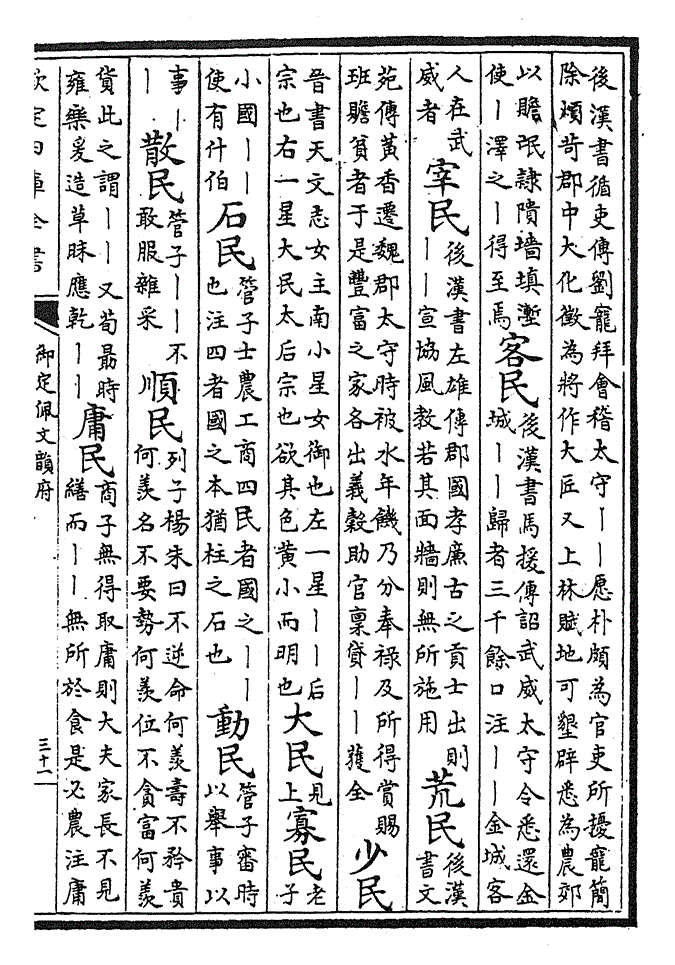 後漢書循吏傳劉寵拜會稽太守——愿朴頗為官吏所擾寵簡
除煩苛郡中大化徵為將作大匠又上林賦地可墾辟悉為農郊
以贍氓隸隤墻填塹
使—澤之—得至焉
客民
後漢書馬援傳詔武威太守令悉還金
城——歸者三千餘口注——金城客
人在武
威者
宰民
後漢書左雄傳郡國孝廉古之貢士出則
——宣協風教若其面牆則無所施用
荒民
後漢
書文
苑傳黄香遷魏郡太守時被水年饑乃分奉祿及所得賞賜
班贍貧者于是豐富之家各出義穀助官稟貸——獲全
少民
晉書天文志女主南小星女御也左一星——后
宗也右一星大民太后宗也欲其色黄小而明也
大民
見
上
寡民
老
子
小國——
使有什伯
石民
管子士農工商四民者國之——
也注四者國之本猶柱之石也
動民
管子審時
以舉事以
事—
—
散民
管子——不
敢服雜采
順民
列子楊朱曰不逆命何羨壽不矜貴
何羨名不要勢何羨位不貪富何羨
貨此之謂——又荀勗時
雍樂爰造草昧應乾——
庸民
商子無得取庸則大夫家長不見
繕而——無所於食是必農注庸
欽定四庫全書
御定佩文韻府
三十一